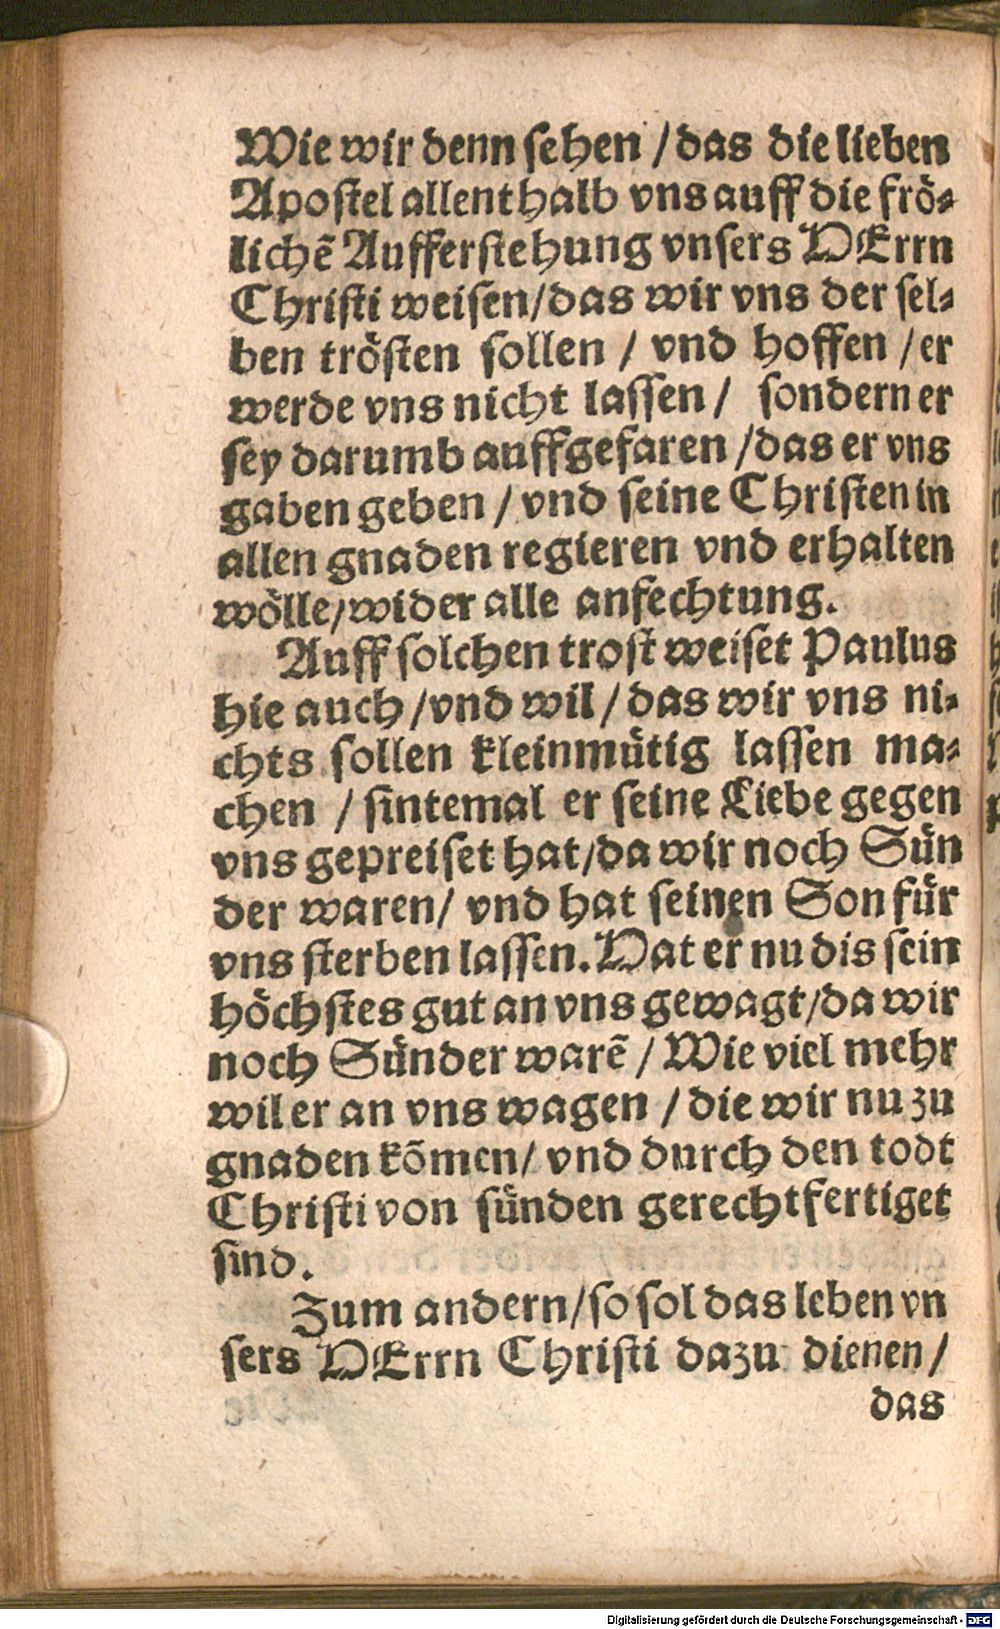 Wie wir denn sehen / das die lieben
Apostel allenthalb vns auff die frö-
lichē Aufferstehung vnsers HErrn
Christi weisen / das wir vns der sel-
ben trösten sollen / vnd hoffen / er
werde vns nicht lassen / sondern er
sey darumb auffgefaren / das er vns
gaben geben / vnd seine Christen in
allen gnaden regieren vnd erhalten
wölle / wider alle anfechtung.
Auff solchen trost weiset Paulus
hie auch / vnd wil / das wir vns ni-
chts sollen kleinmütig lassen ma-
chen / sintemal er seine Liebe gegen
vns gepreiset hat / da wir noch Sün
der waren / vnd hat seinen Son für
vns sterben lassen. Hat er nu dis sein
höchstes gut an vns gewagt / da wir
noch Sünder warē / Wie viel mehr
wil er an vns wagen / die wir nu zu
gnaden kõmen / vnd durch den todt
Christi von sünden gerechtfertiget
sind.
Zum andern / so sol das leben vn
sers HErrn Christi dazu dienen /
das
Digitalisierung gefördert durch die Deutsche Forschungsgemeinschaft - DFG